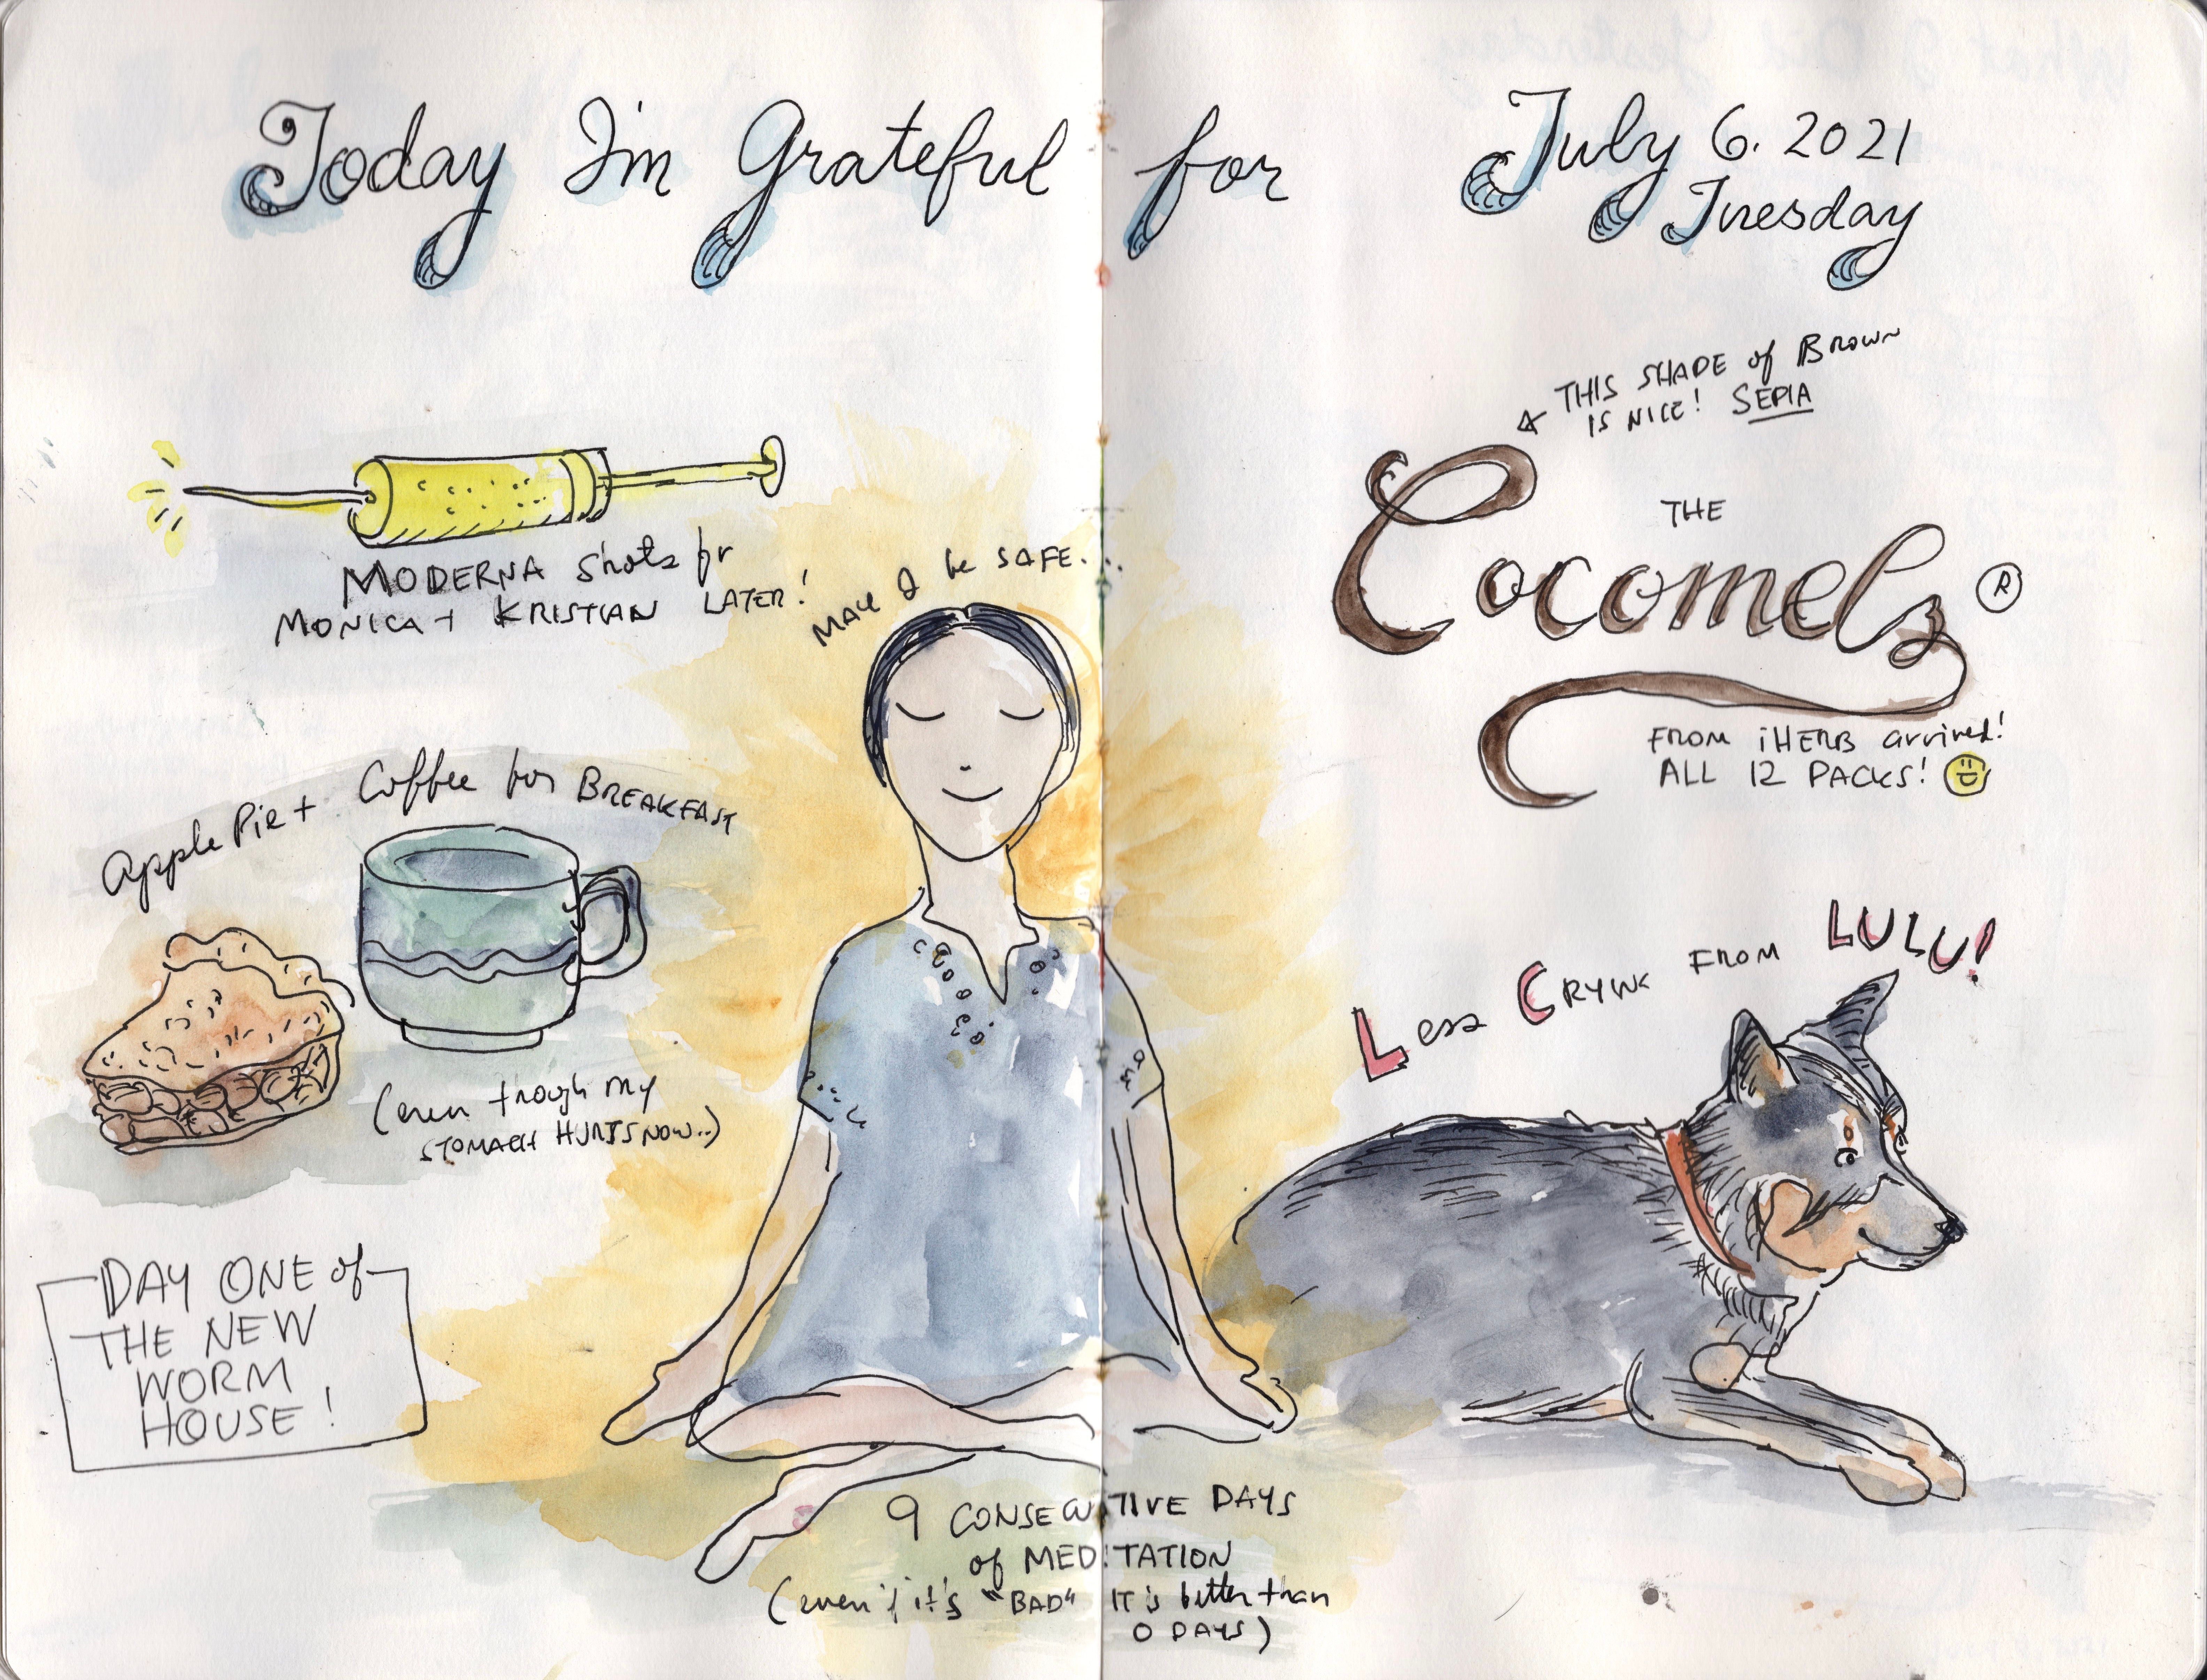 Today I'm Grateful for
July 6. 2021
Tuesday
MODERNA Shots for
MONICA + KRISTIAN LATER!
MAY I be SAFE...
THIS SHADE of BROWN
IS NICE! SEPIA
THE
Cocomels ®
FROM iHERB arrived!
ALL 12 PACKS!
Apple Pie + Coffee for BREAKFAST
(even trough my
STOMACH HURTS NOW..)
Less CRYING FROM LULU!
DAY ONE of
THE NEW
WORM
HOUSE!
9 CONSECUTIVE DAYS
of MEDITATION
(even if it's "BAD" IT is better than
0 DAYS)